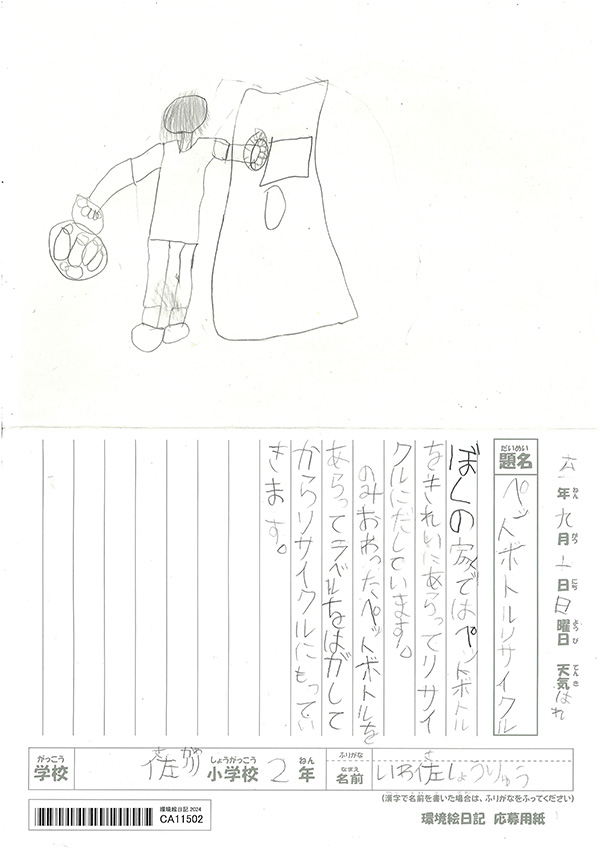 六年九月一日日曜日 天気はれ
ねん がつ にち ようび てんき
だいめい
題名
ペットボトルリサイクル
ぼくの家ではペットボトル
をきれいにあらってリサイ
クルにだしています。
のみおわったペットボトルを
あらってラベルをはがして
からリサイクルにもってい
きます。
がっこう しょうがっこう ねん
学校 佐 小学校 2年
ふりがな
なまえ
名前 いわ佐しょうりゅう
さ
(漢字で名前を書いた場合は、ふりがなをふってください)
環境絵日記 2024
CA11502
環境絵日記 応募用紙